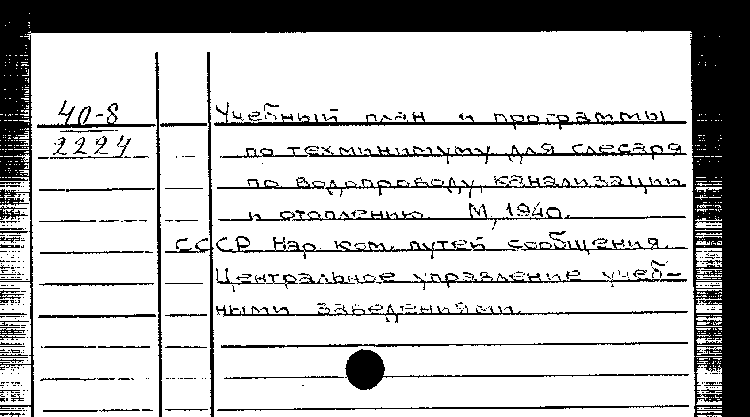 40-8
2224
Учебный план и программы
по техминимуму для слесаря
по водопроводу, канализации
и отоплению. М, 1940.
СССР Нар. ком. путей сообщения.
Центральное управление учеб-
ными заведениями.